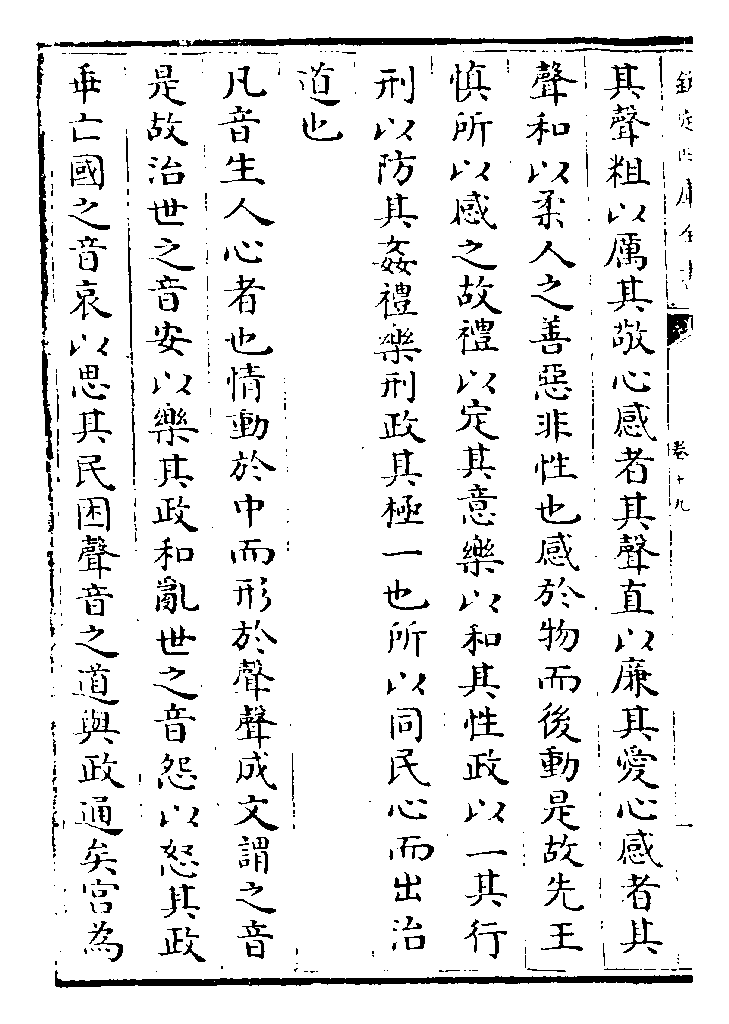 欽定四庫全書
卷十九
其聲粗以厲其敬心感者其聲直以廉其愛心感者其
聲和以柔人之善惡非性也感於物而後動是故先王
慎所以感之故禮以定其意樂以和其性政以一其行
刑以防其姦禮樂刑政其極一也所以同民心而出治
道也
凡音生人心者也情動於中而形於聲聲成文謂之音
是故治世之音安以樂其政和亂世之音怨以怒其政
乖亡國之音哀以思其民困聲音之道與政通矣宮為